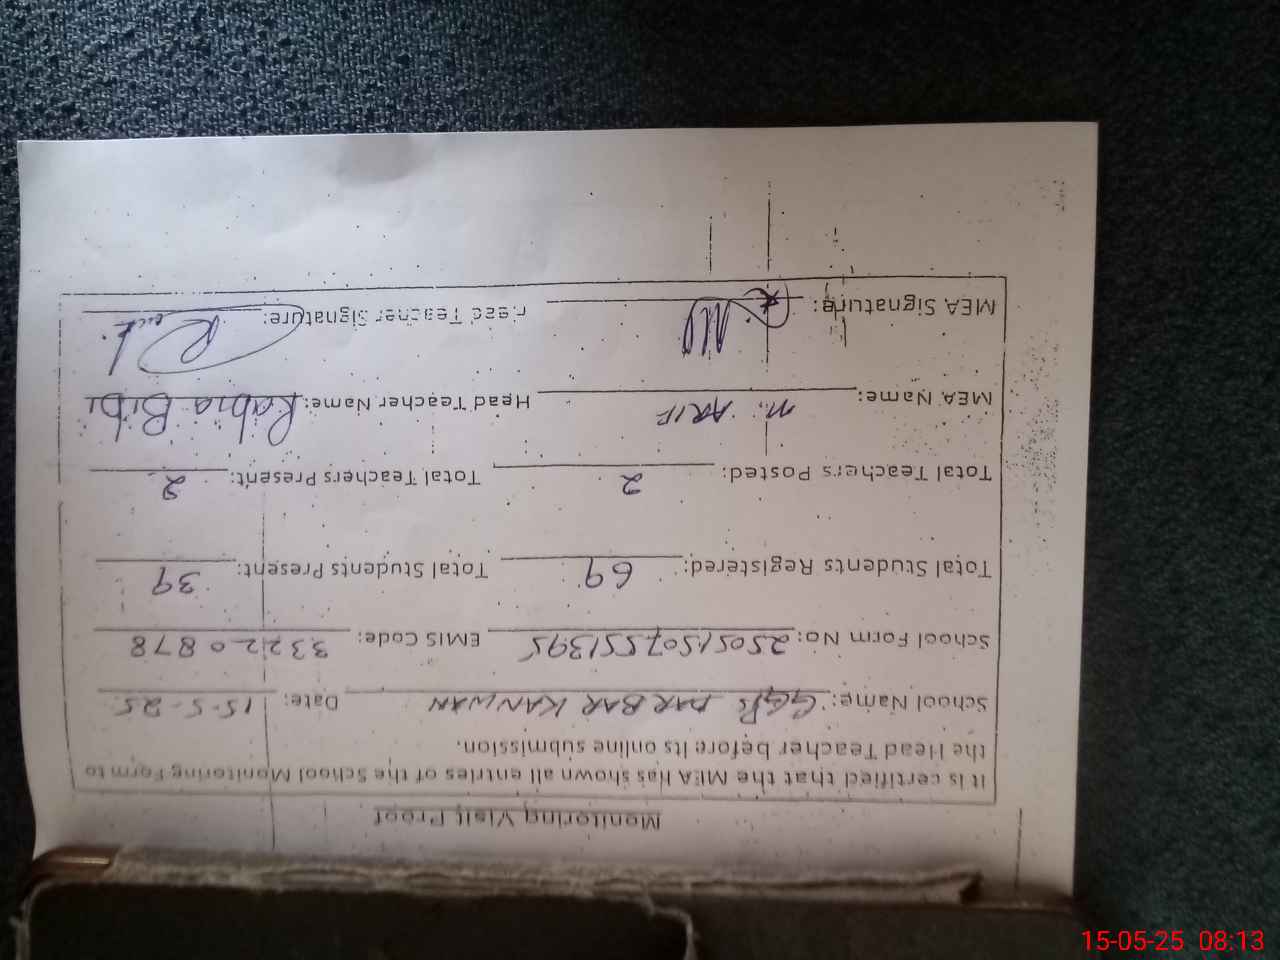 Monitoring Visit Proof
It is certified that the MEA has shown all entries of the School Monitoring Form to
the Head Teacher before its online submission.
School Name: GGPS DARBAR KANWAN Date: 15-5-25
School Form No: 25051507551395 EMIS Code: 33220878
Total Students Registered: 69 Total Students Present: 39
Total Teachers Posted: 2 Total Teachers Present: 2
MEA Name: M. ARIF Head Teacher Name: Rabia Bibi
MEA Signature: Head Teacher Signature:
15-05-25 08:13